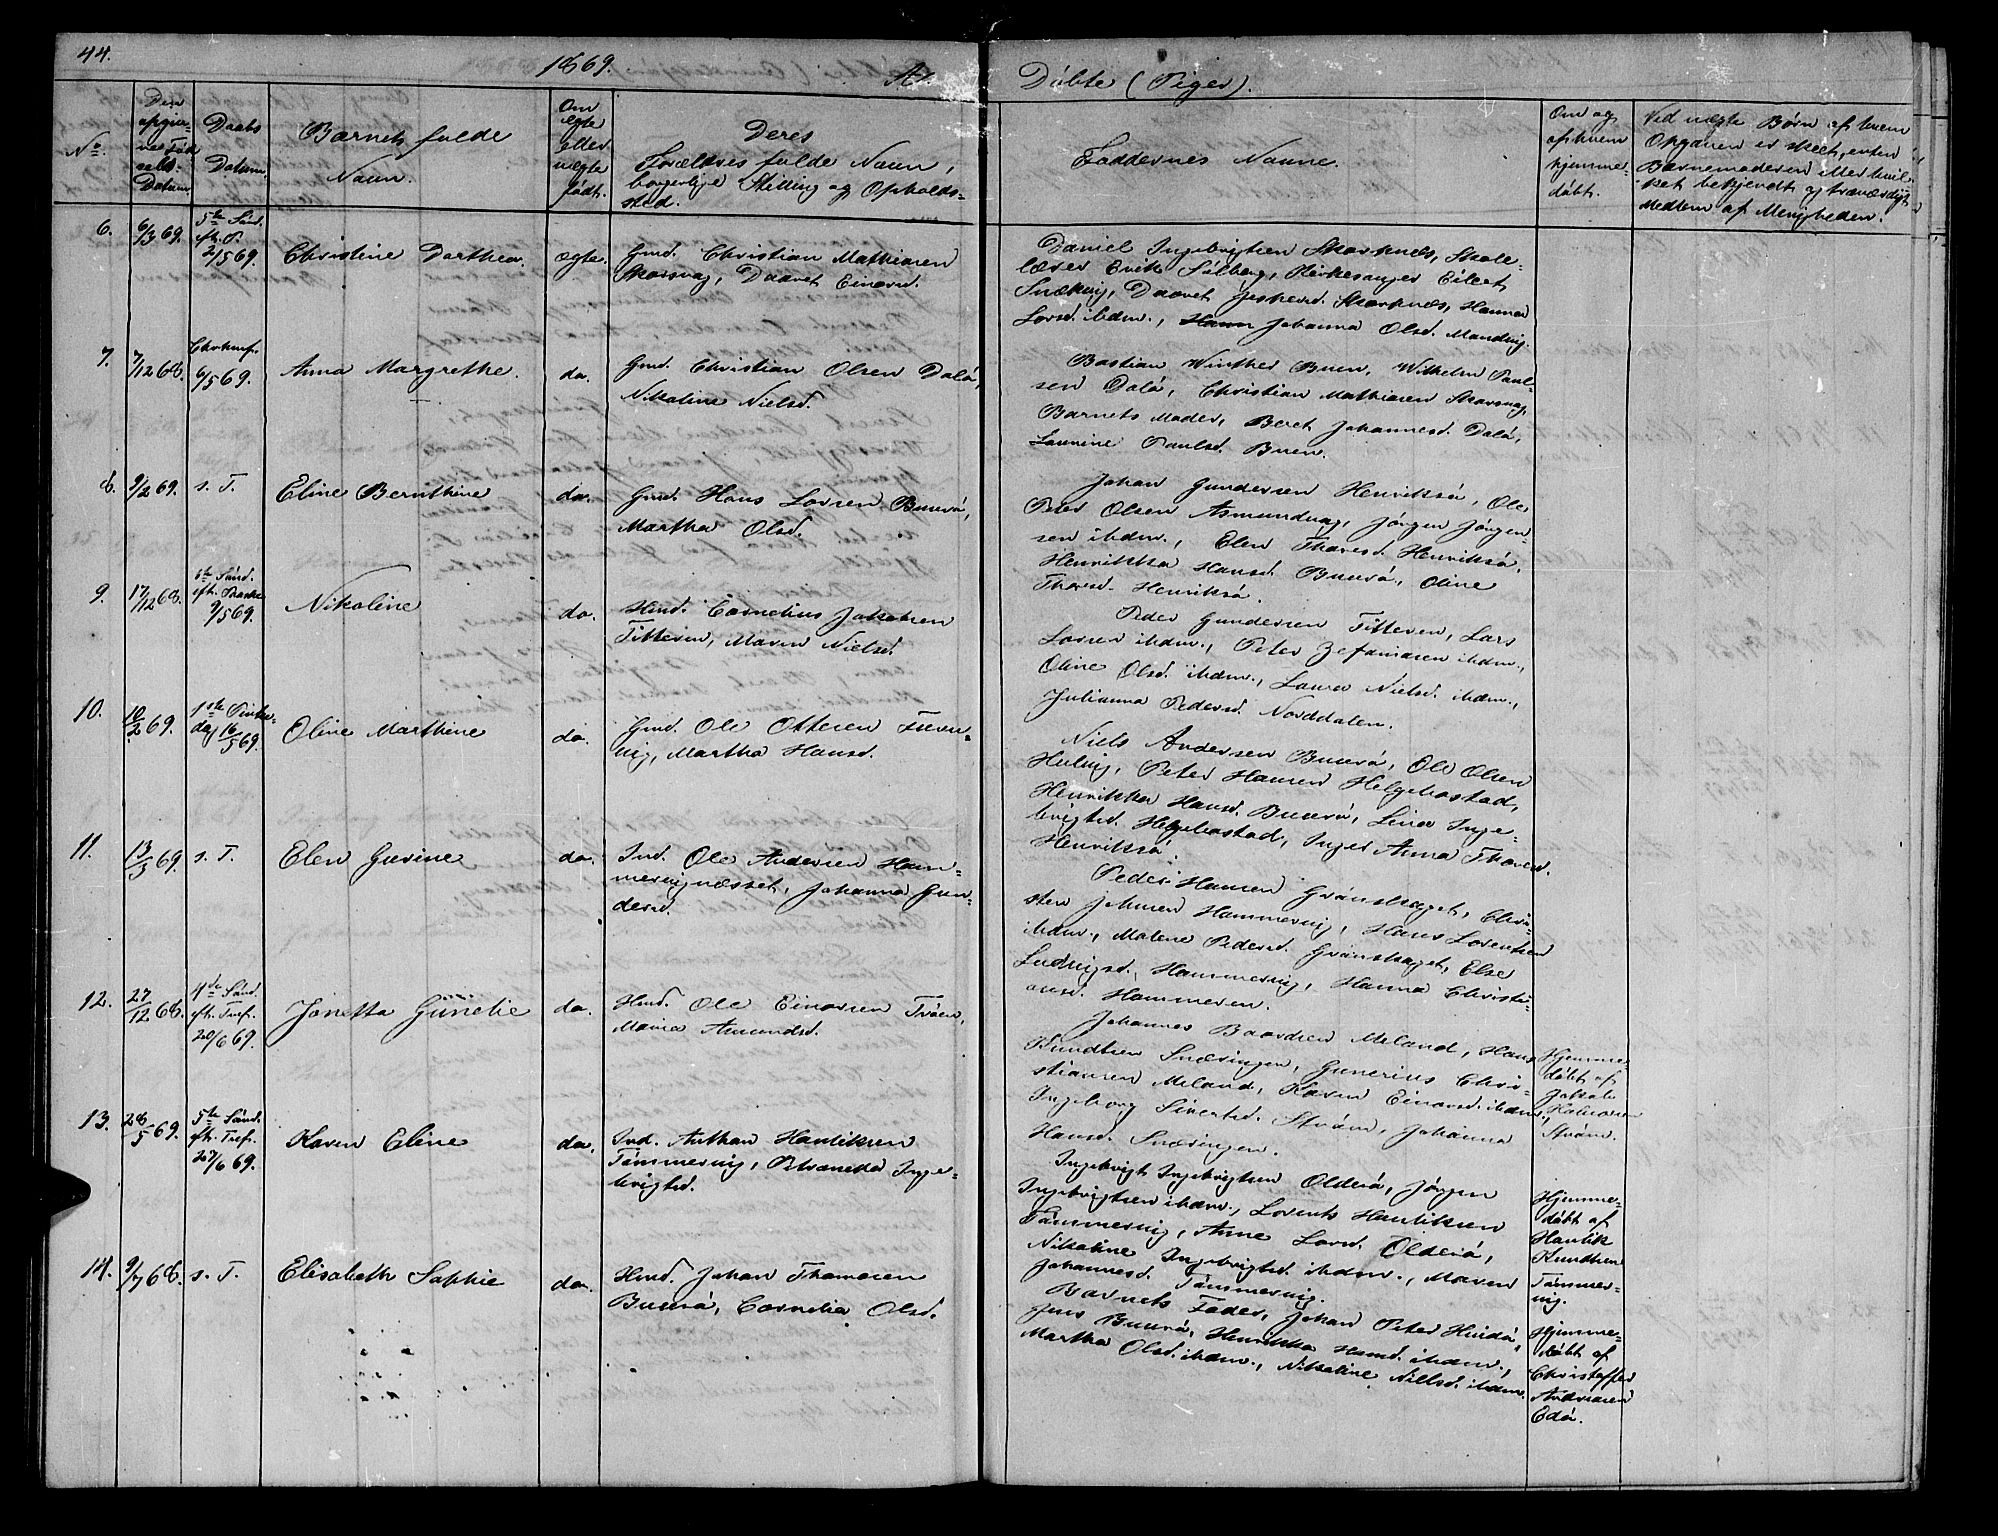 44.
1869.
A.
Döbte (Piger).
No.
Den
opgivne
Födsels-
Datum
Daabs
Datum.
Barnets fulde
Navn.
Om
ægte
eller
uægte
födt.
Deres
Forældres fulde Navn,
borgerlige Stilling og Opholds-
sted.
Faddernes Navne.
Om og
af hvem
hjemme-
döbt.
Ved uægte Börn af hvem
Opgaven er skeet, enten
Barnemoderen eller hvil-
ket bekjendt og troværdigt
Medlem af Menigheden.
6.
6/3 69.
5te Sönd.
eft. P.
2/5 69.
Christine Dorthea.
ægte.
Gmd. Christian Mathiasen
Skarsvag, Daaret Einarsd.
Daniel Ingebrigtsen Skarknes, Skole-
lærer Erik Solberg, Kirkesanger Eilert
Snekvig, Daaret Jespersd. Skarknes, Hanna
Larsd. ibdm., Johanna Olsd. Mandvig.
7.
7/12 68.
6/5 69.
Anna Margrethe.
do.
Gmd. Christian Olsen Dalö,
Nikoline Nielsd.
Bastian Winther Buen, Wilhelm Paul-
sen Dalö, Christian Mathiasen Skarsvag,
Barnets Moder, Beret Johannesd. Dalö,
Laurine Paulsd. Buen.
8.
9/2 69.
s. T.
Eline Bernthine
do.
Gmd. Hans Larsen Buerö,
Martha Olsd.
Johan Gundersen Henriksö, Ole
Peter Olsen Asmundvag, Jörgen Jörgen-
sen ibdm., Elen Thoresd. Henriksö,
Henrikka Hansd. Buerö, Oline
Thoresd. Henriksö.
9.
17/12 68.
eft. Paaske
9/5 69.
Nikoline
do.
Hmd. Cornelius Jakobsen
Titteren, Maren Nielsd.
Peder Gundersen Titteren, Lars
Larsen ibdm., Peter Zefaniasen ibdm.,
Oline Olsd. ibdm., Laura Nielsd. ibdm.,
Julianna Pedersd. Norddalen.
10.
10/2 69.
1ste Pintse-
dag 16/5 69.
Oline Marthine
do.
Gmd. Ole Ottesen
Martha Hansd.
Niels Andersen Buerö, Ole Olsen
Hulvig, Peter Hansen Helgebostad,
Henrikka Hansd. Buerö, Lina Inge-
brigtsd. Helgebostad, Inger Anna Thoresd.
Henriksö.
11.
13/3 69.
s. T.
Elen Gusine
do.
Ind. Ole Andersen Ham-
mervignæsset, Johanna Gun-
dersd.
Peder Hansen Grönskaget, Chri-
sten Johnsen Hammervig, Hans Lorentsen
ibdm., Malene Pedersd. Grönskaget, Else
Ludvigsd. Hammervig, Hanna Christi-
ansd. Hammeren.
12.
27/12 68.
4de Sönd.
eft. Tref.
20/6 69.
Jonetta Günelie
do.
Hmd. Ole Einarsen Tröen,
Maria Amundsd.
Johannes Baardsen Meland, Hans
Knudtsen Snæringen, Gunerius Chri-
stiansen Meland, Karen Einarsd. ibdm.,
Ingeborg Sivertsd. Ström, Johanna
Hansd. Snæringen.
Hjemme-
döbt af
Jakob
Ström.
13.
28/5 69.
5te Sönd.
eft. Tref.
27/6 69.
Karen Eline
do.
Ind. Anthon Hauliksen
Tömmervig, Petranella Inge-
brigtsd.
Ingebrigt Ingebrigtsen Olderö, Jörgen
Ingebrigtsen ibdm., Lorents Hauliksen
Tömmervig, Anne Larsd. Olderö,
Nikoline Ingebrigtsd. ibdm., Maren
Johannesd. Tömmervig.
Hjemme-
döbt af
Haulik
Knudtsen
Tömmer-
vig.
14.
9/7 68.
s. T.
Elisabeth Sophie
do.
Hmd. Johan Thomasen
Buerö, Cornelia Olsd.
Barnets Fader, Johan Peter Hindö,
Jens Buerö, Henrikka Hansd. ibdm.,
Martha Olsd. ibdm., Nikoline Nielsd. ibdm.
Hjemme-
döbt af
Christoffer
Andreasen
Edö.